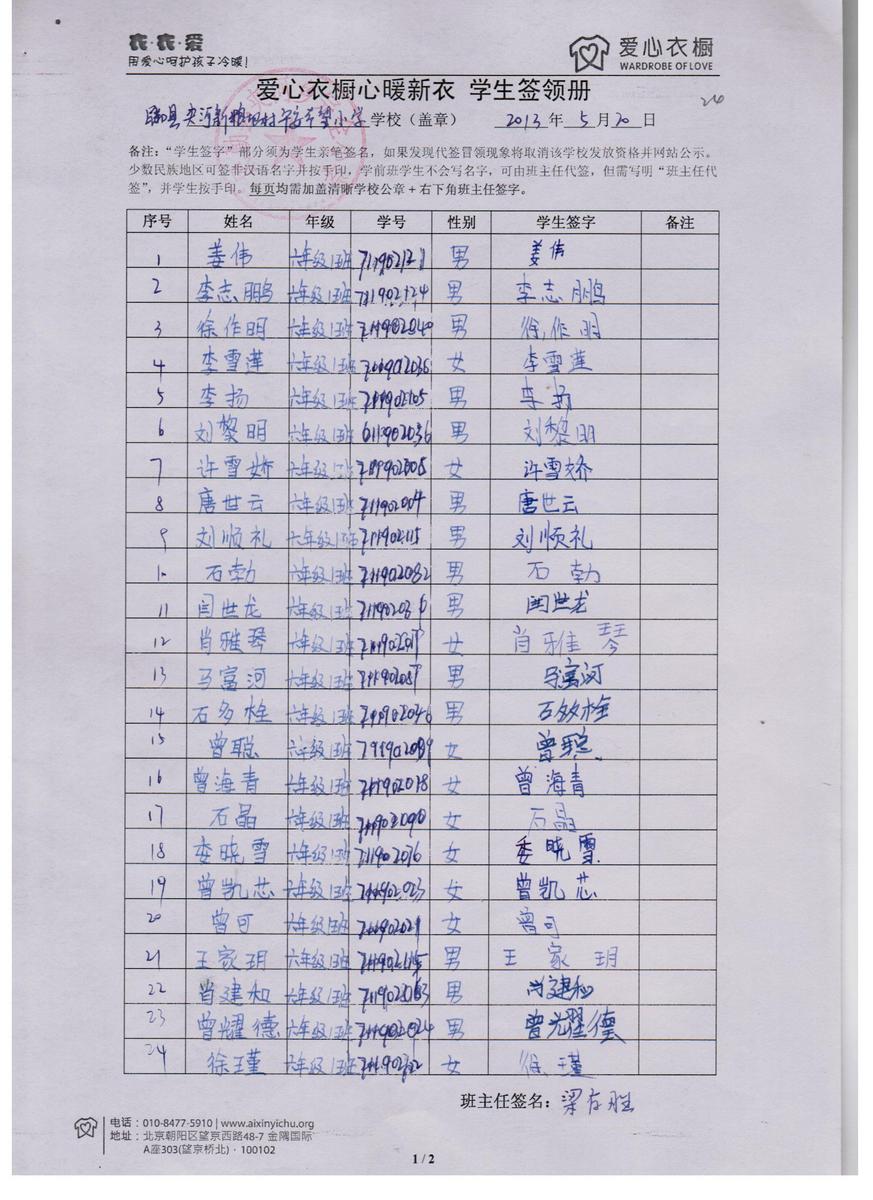 衣·衣·爱
用爱心呵护孩子冷暖!
爱心衣橱
WARDROBE OF LOVE
爱心衣橱心暖新衣 学生签领册
24
希望小学 学校（盖章） 2013 年 5 月 20 日
备注：“学生签字”部分须为学生亲笔签名，如果发现代签冒领现象将取消该学校发放资格并网站公示。
少数民族地区可签非汉语名字并按手印，学前班学生不会写名字，可由班主任代签，但需写明“班主任代
签”，并学生按手印。每页均需加盖清晰学校公章＋右下角班主任签字。
序号 姓名 年级 学号 性别 学生签字 备注
1 姜伟 六年级1班 男 姜伟
2 李志鹏 六年级1班 711902124 男 李志鹏
3 徐作明 六年级1班 男 徐作明
4 李雪莲 六年级1班 女 李雪莲
5 李扬 六年级1班 男 李扬
6 刘黎明 六年级1班 男 刘黎明
7 许雪娇 六年级1班 女 许雪娇
8 唐世云 六年级1班 男 唐世云
9 刘顺礼 六年级1班 711902115 男 刘顺礼
10 石勃 六年级1班 711902032 男 石勃
11 闫世龙 六年级1班 男 闫世龙
12 肖雅琴 六年级1班 女 肖雅琴
13 马富河 六年级1班 男 马富河
14 石多栓 六年级1班 男 石多栓
15 曾聪 六年级1班 女 曾聪
16 曾海青 六年级1班 711902018 女 曾海青
17 石晶 六年级1班 女 石晶
18 娄晓雪 六年级1班 711902036 女 娄晓雪
19 曾凯芯 六年级1班 女 曾凯芯
20 曾可 六年级1班 女 曾可
21 王家玥 六年级1班 男 王家玥
22 肖建和 六年级1班 男 肖建和
23 曾耀德 六年级1班 男 曾耀德
24 徐瑾 六年级1班 女 徐瑾
班主任签名：梁存胜
电话：010-8477-5910 | www.aixinyichu.org
地址：北京朝阳区望京西路48-7 金隅国际
A座303(望京桥北)·100102
1 / 2